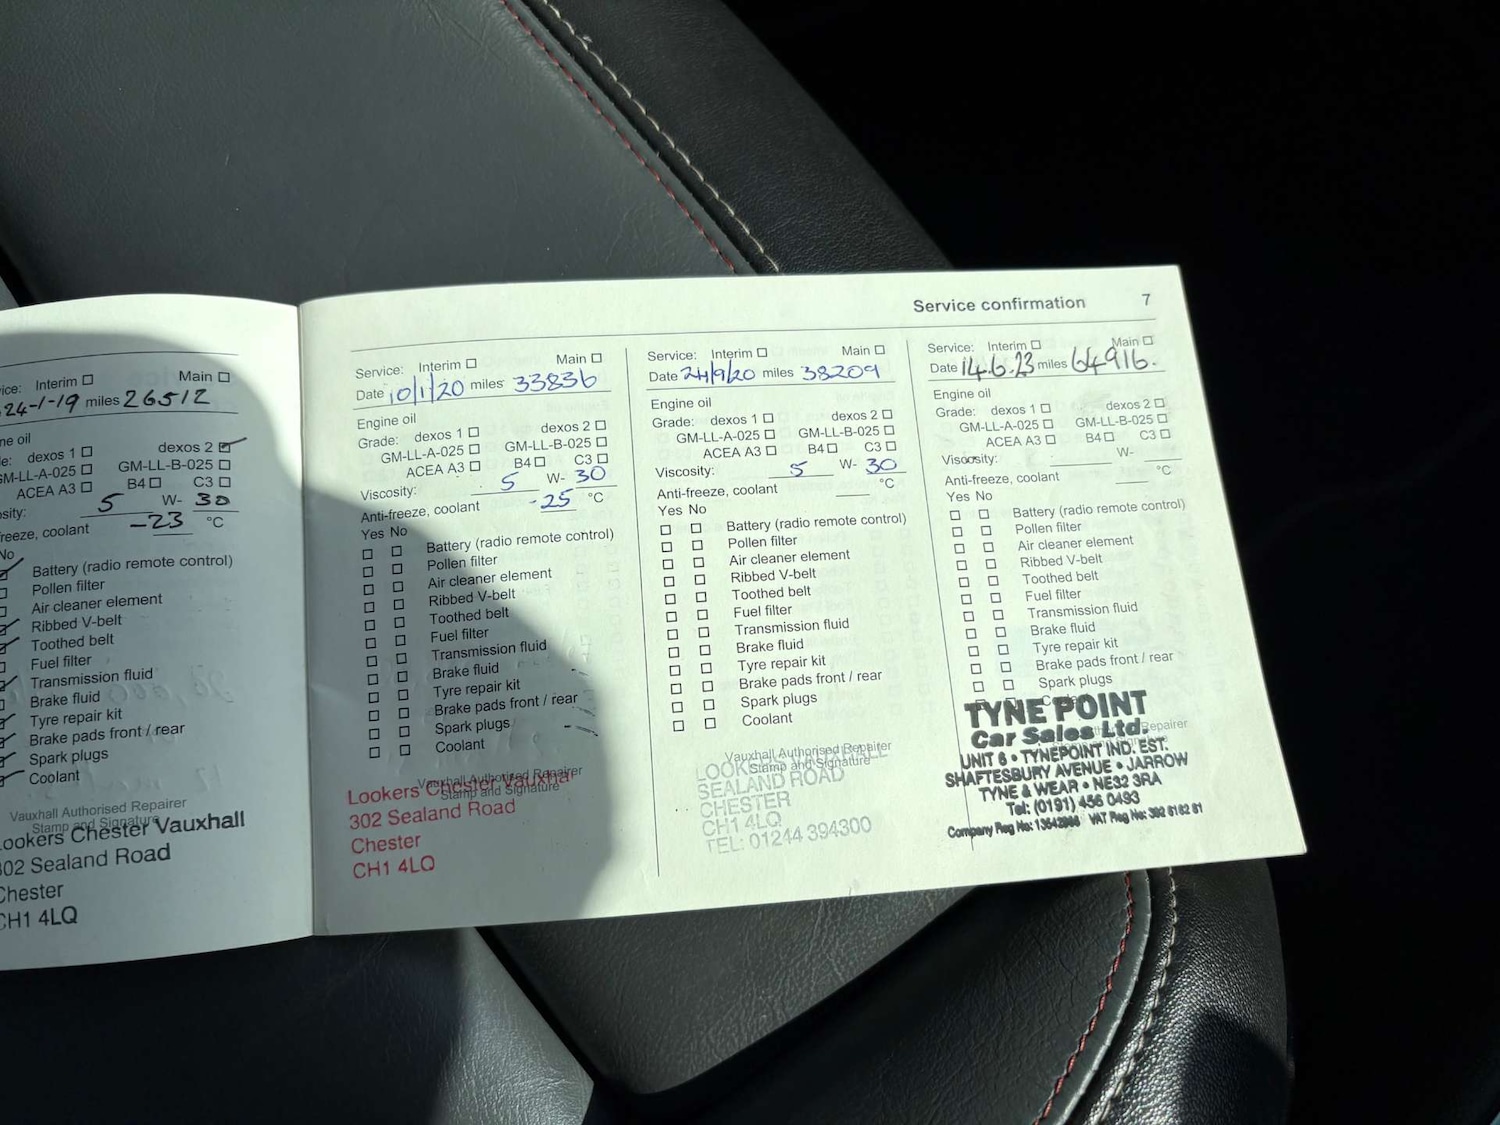 ice: Interim Main
24-1-19 miles 26512
ne oil
e: dexos 1 dexos 2
GM-LL-A-025 GM-LL-B-025
ACEA A3 B4 C3
sity: 5 W- 30
freeze, coolant -23 °C
No
Battery (radio remote control)
Pollen filter
Air cleaner element
Ribbed V-belt
Toothed belt
Fuel filter
Transmission fluid
Brake fluid
Tyre repair kit
Brake pads front / rear
Spark plugs
Coolant
Vauxhall Authorised Repairer
Stamp and Signature
Lookers Chester Vauxhall
302 Sealand Road
Chester
CH1 4LQ
Service confirmation 7
Service: Interim Main
Date 10/1/20 miles 33836
Engine oil
Grade: dexos 1 dexos 2
GM-LL-A-025 GM-LL-B-025
ACEA A3 B4 C3
Viscosity: 5 W- 30
Anti-freeze, coolant -25 °C
Yes No
Battery (radio remote control)
Pollen filter
Air cleaner element
Ribbed V-belt
Toothed belt
Fuel filter
Transmission fluid
Brake fluid
Tyre repair kit
Brake pads front / rear
Spark plugs
Coolant
Vauxhall Authorised Repairer
Stamp and Signature
Lookers Chester Vauxhal
302 Sealand Road
Chester
CH1 4LQ
Service: Interim Main
Date 24/9/20 miles 38209
Engine oil
Grade: dexos 1 dexos 2
GM-LL-A-025 GM-LL-B-025
ACEA A3 B4 C3
Viscosity: 5 W- 30
Anti-freeze, coolant °C
Yes No
Battery (radio remote control)
Pollen filter
Air cleaner element
Ribbed V-belt
Toothed belt
Fuel filter
Transmission fluid
Brake fluid
Tyre repair kit
Brake pads front / rear
Spark plugs
Coolant
Vauxhall Authorised Repairer
Stamp and Signature
LOOKERS VAUXHALL
SEALAND ROAD
CHESTER
CH1 4LQ
TEL: 01244 394300
Service: Interim Main
Date 14.6.23 miles 64916.
Engine oil
Grade: dexos 1 dexos 2
GM-LL-A-025 GM-LL-B-025
ACEA A3 B4 C3
Viscosity: W-
Anti-freeze, coolant °C
Yes No
Battery (radio remote control)
Pollen filter
Air cleaner element
Ribbed V-belt
Toothed belt
Fuel filter
Transmission fluid
Brake fluid
Tyre repair kit
Brake pads front / rear
Spark plugs
Repairer
TYNE POINT
Car Sales Ltd.
UNIT 6 • TYNEPOINT IND. EST.
SHAFTESBURY AVENUE • JARROW
TYNE & WEAR • NE32 3RA
Tel: (0191) 456 0493
Company Reg No: VAT Reg No: